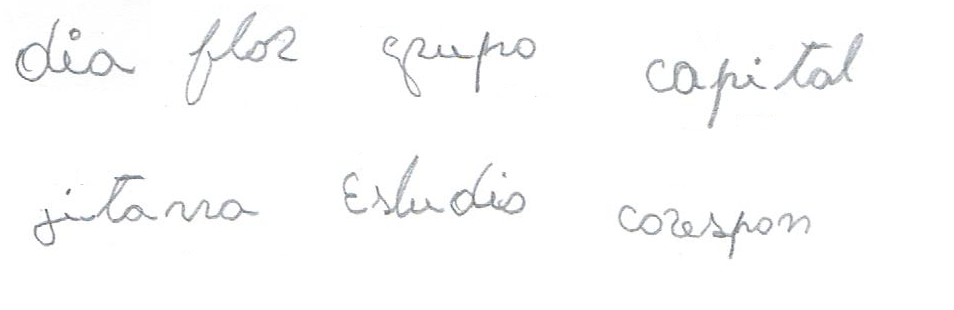 dia flor grupo capital
jitarra Estudio corespon